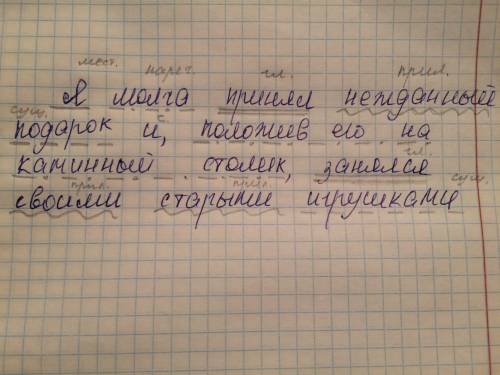 мест. нареч. гл. прил.
Я молча принял нежданный
сущ. с.
подарок и, положив его на
гл.
каминный столик, занялся
прил. прил. сущ.
своими старыми игрушками